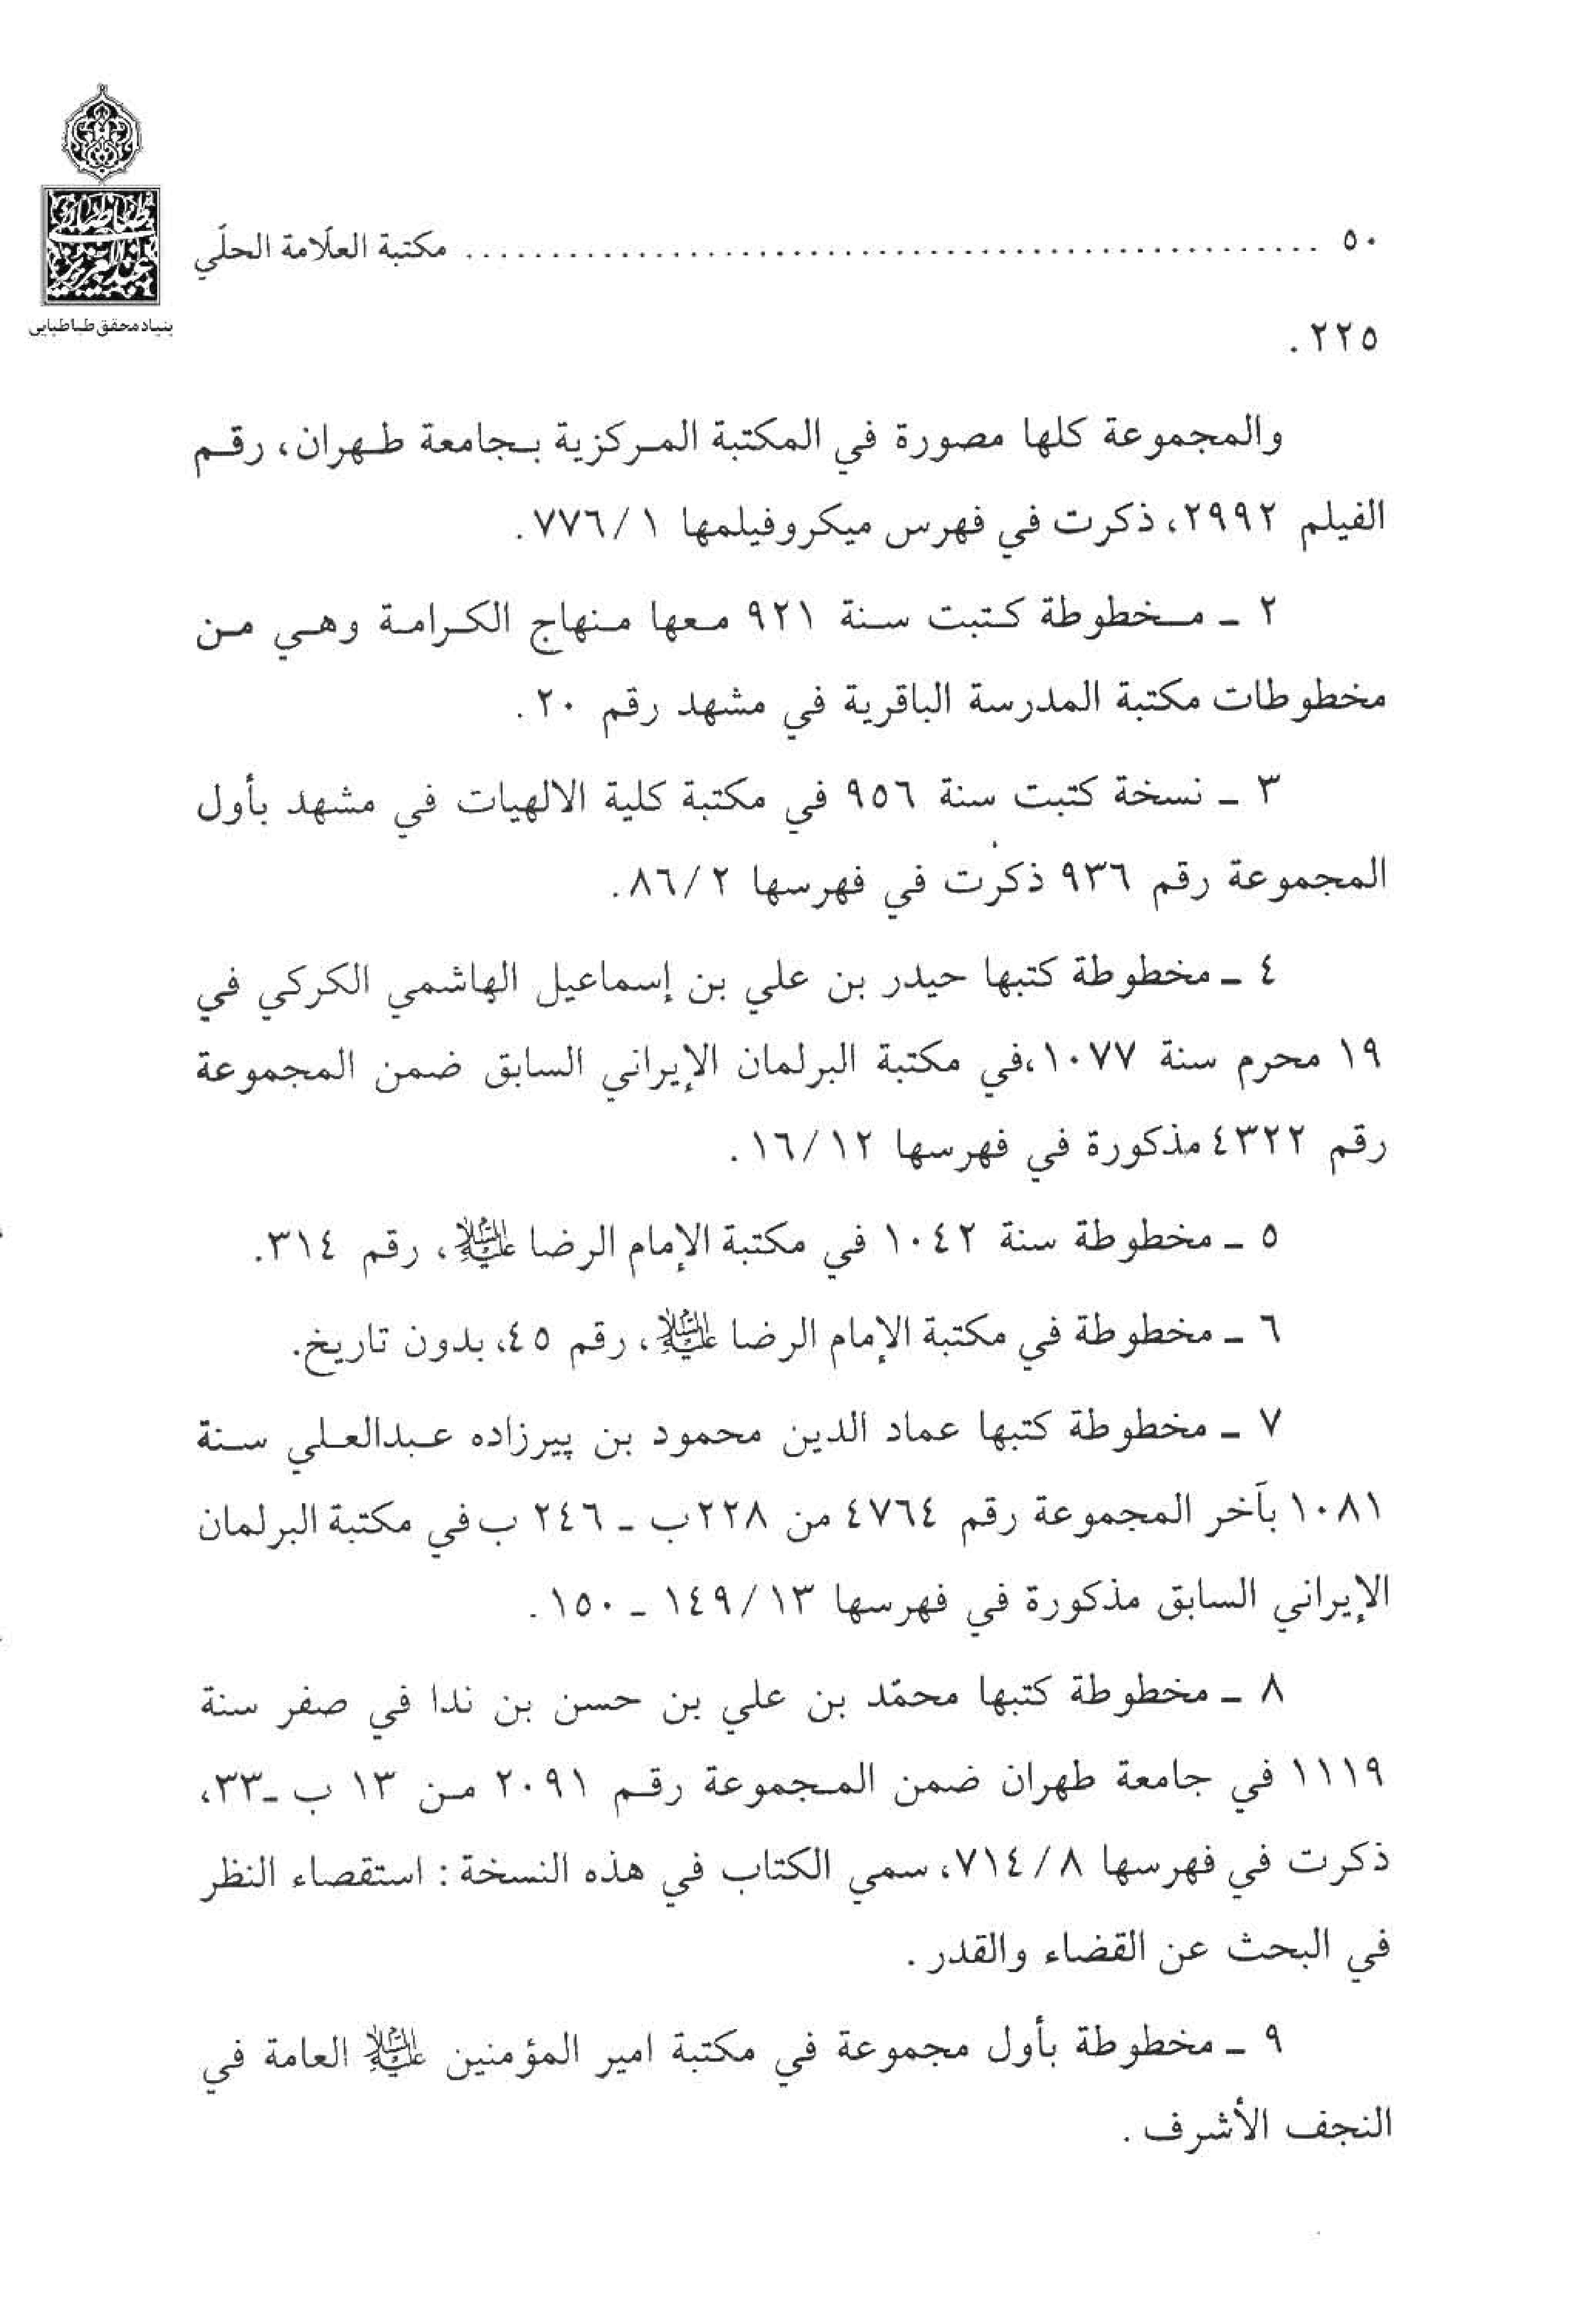 ٥٠ ........................................................ مكتبة العلّامة الحلّي
بنیاد محقق طباطبایی
٢٢٥ .
والمجموعة كلها مصورة في المكتبة المركزية بجامعة طهران، رقم
الفيلم ٢٩٩٢، ذكرت في فهرس ميكروفيلمها ١/٧٧٦.
٢ ـ مخطوطة كتبت سنة ٩٢١ معها منهاج الكرامة وهي من
مخطوطات مكتبة المدرسة الباقرية في مشهد رقم ٢٠ .
٣ ـ نسخة كتبت سنة ٩٥٦ في مكتبة كلية الالهيات في مشهد بأول
المجموعة رقم ٩٣٦ ذكرت في فهرسها ٨٦/٢.
٤ ـ مخطوطة كتبها حيدر بن علي بن إسماعيل الهاشمي الكركي في
١٩ محرم سنة ١٠٧٧،في مكتبة البرلمان الإيراني السابق ضمن المجموعة
رقم ٤٣٢٢ مذكورة في فهرسها ١٦/١٢ .
٥ ـ مخطوطة سنة ١٠٤٢ في مكتبة الإمام الرضا عليه السلام، رقم ٣١٤.
٦ ـ مخطوطة في مكتبة الإمام الرضا عليه السلام، رقم ٤٥، بدون تاريخ.
٧ ـ مخطوطة كتبها عماد الدين محمود بن پيرزاده عبدالعلي سنة
١٠٨١ بآخر المجموعة رقم ٤٧٦٤ من ٢٢٨ب ـ ٢٤٦ ب في مكتبة البرلمان
الإيراني السابق مذكورة في فهرسها ١٤٩/١٣ ـ ١٥٠ .
٨ ـ مخطوطة كتبها محمّد بن علي بن حسن بن ندا في صفر سنة
١١١٩ في جامعة طهران ضمن المجموعة رقم ٢٠٩١ من ١٣ ب ـ٣٣،
ذكرت في فهرسها ٧١٤/٨، سمي الكتاب في هذه النسخة : استقصاء النظر
في البحث عن القضاء والقدر .
٩ ـ مخطوطة بأول مجموعة في مكتبة امير المؤمنين عليه السلام العامة في
النجف الأشرف .